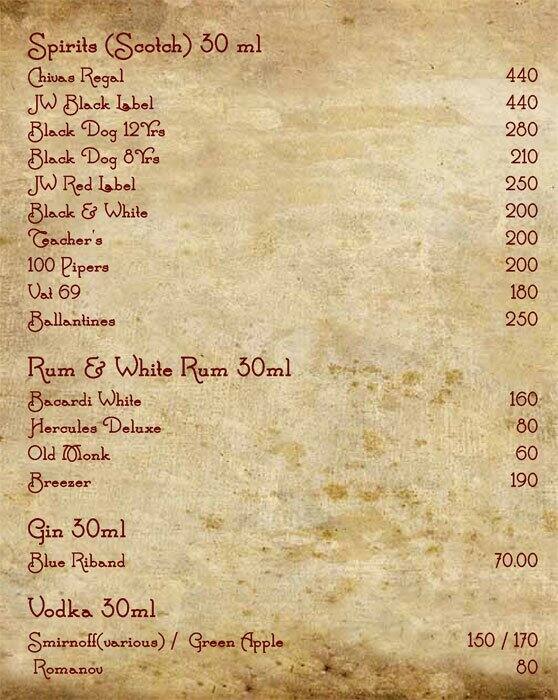 Spirits (Scotch) 30 ml
Chivas Regal 440
JW Black Label 440
Black Dog 12Yrs 280
Black Dog 8Yrs 210
JW Red Label 250
Black & White 200
Teacher's 200
100 Pipers 200
Vat 69 180
Ballantines 250
Rum & White Rum 30ml
Bacardi White 160
Hercules Deluxe 80
Old Monk 60
Breezer 190
Gin 30ml
Blue Riband 70.00
Vodka 30ml
Smirnoff(various) / Green Apple 150 / 170
Romanov 80